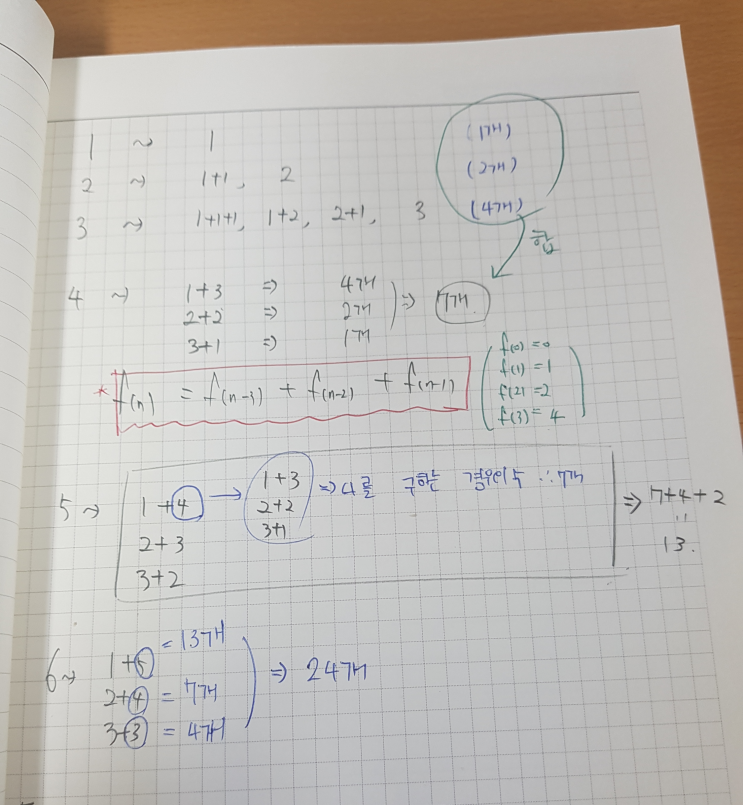 1 ~ 1 (1개)
2 ~ 1+1, 2 (2개)
3 ~ 1+1+1, 1+2, 2+1, 3 (4개)
4 ~ 1+3 => 4개
2+2 => 2개 => 7개
3+1 => 1개
* f(n) = f(n-3) + f(n-2) + f(n-1)
f(0) = 0
f(1) = 1
f(2) = 2
f(3) = 4
1+3
5 ~ 1+4 → 2+2 => 4를 구하는 경우의 수 ∴ 7개 => 7+4+2
3+1
2+3 " 13.
3+2
6 ~ 1+5 = 13개
2+4 = 7개 => 24개
3+3 = 4개